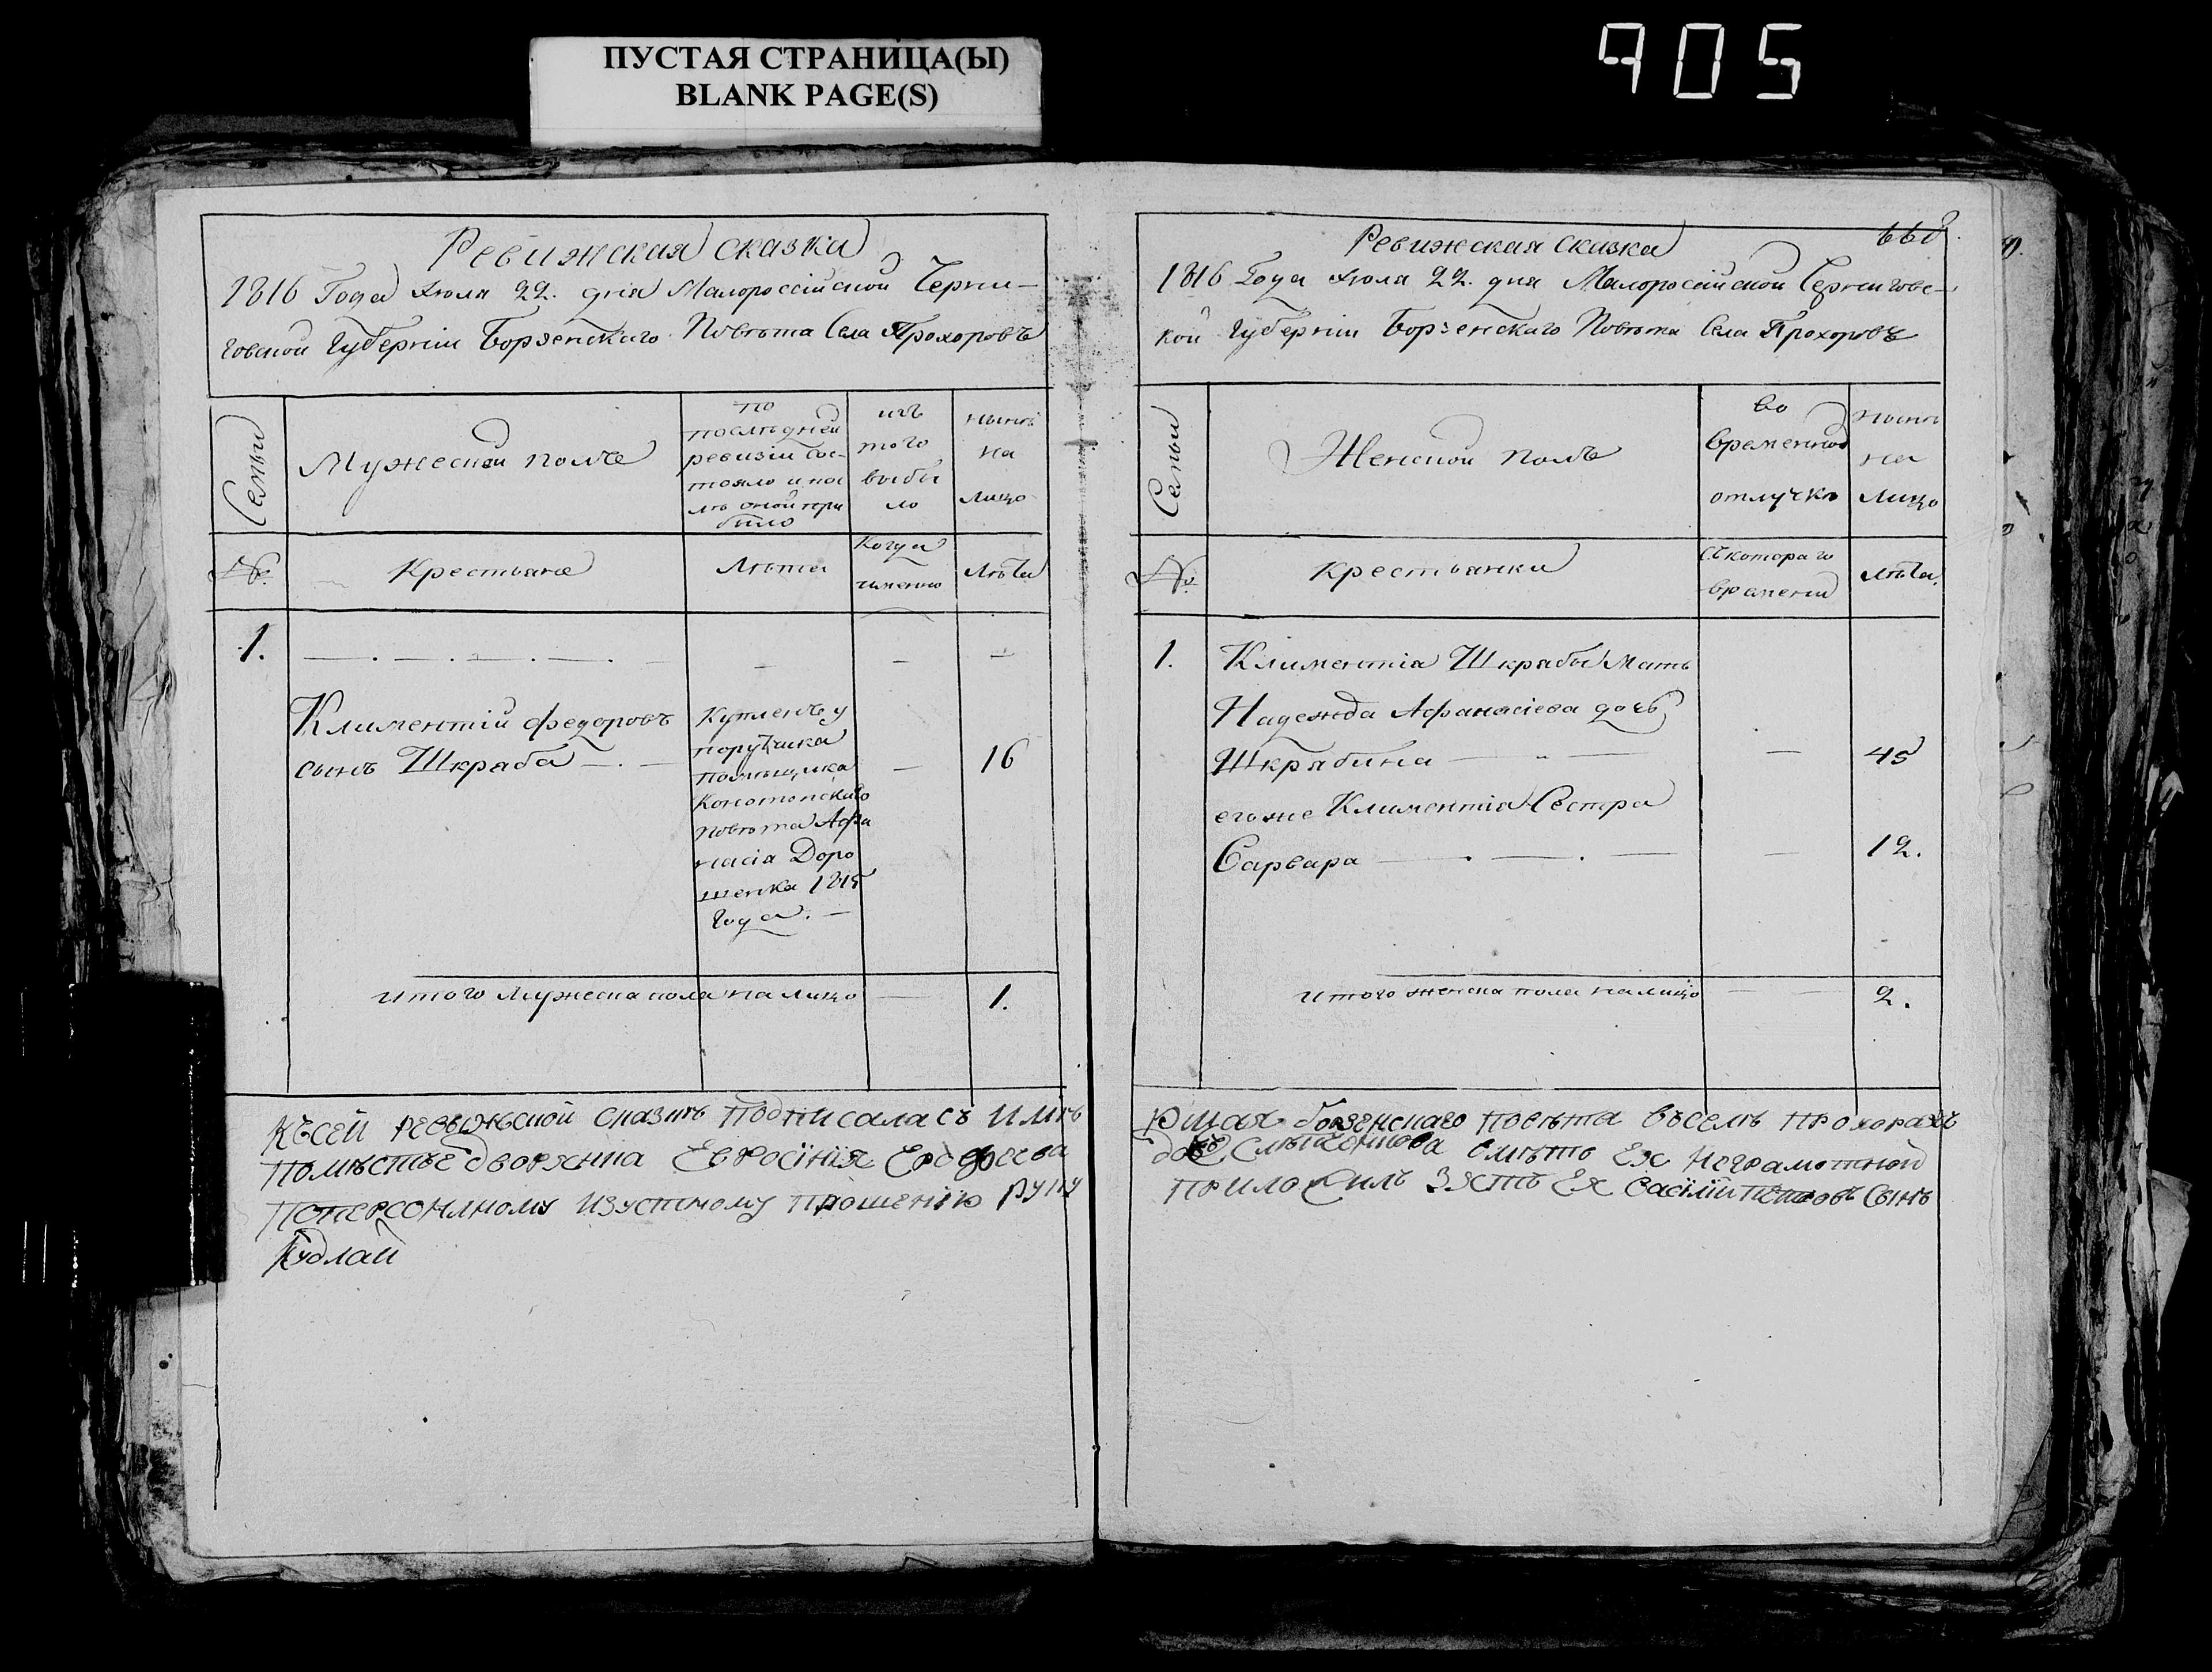 ПУСТАЯ СТРАНИЦА(Ы)
BLANK PAGE(S)
905
Ревижская сказка
1816 Года Июля 22. дня Малороссійской Черни-
говской Губерніи Борзенскаго Повѣта Села Прохоровъ
Семьи
Мужеской полъ
по
последней
ревизіи сос-
тояло и пос
лѣ оной при
было
изъ
того
выбы
ло
нынѣ
на
лицо
№.
Крестьяне
Лѣта
Когда
именно
Лѣта
1.
Климентій Федоровъ
сынъ Шкраба
16
Купленъ у
порутчика
помѣщика
Конотопскаго
повѣта Афа
насія Доро
шенка 1815
Года.
Итого Мужеска пола на лицо
1.
Къ сей ревыжской сказкѣ подписалась имѣ
поместье дворянка Евросінія
поперсоналному изустному прошенію руку
Кудлай
Ревижская сказка
1816 Года Июля 22. дня Малоросійской Черниговс-
кой Губерніи Борзенскаго Повѣта Села Прохоровъ
Семьи
Женской полъ
во
временной
отлучкѣ
нынѣ
на
лицо
№.
Крестьянки
Съ котораго
времени
лѣта.
1.
Климентія Шкрабы Мать
Надежда Афанасіева дочь
Шкрабина
45
его же Климентія Сестра
Варвара
12.
Итого женска пола на лицо
2.
ющая борзенскаго повѣта въ селѣ прохорахъ
вмѣсто Ея неграмотной
приложилъ Зять Ея Васілій Сынъ